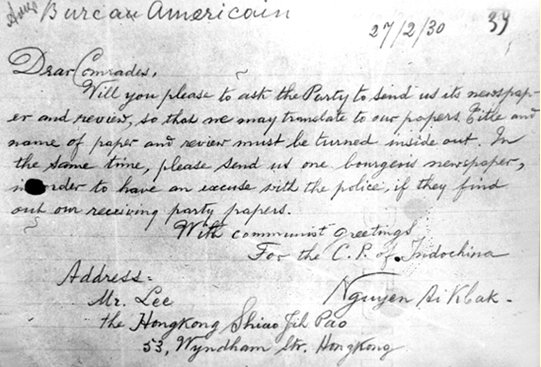 Bureau Americain
27/2/30 39
Dear Comrades,
Will you please to ask the Party to send us its newspap-
er and review, so that we may translate to our papers. Title and
name of paper and review must be turned inside out. In
the same time, please send us one bourgeois newspaper,
in order to have an excuse with the police, if they find
out our receiving party papers.
With communist greetings
For the C.P. of Indochina
Address: Nguyen Ai Kbak.
Mr. Lee
the Hongkong Shiao Jih Pao
53, Wyndham Str. Hongkong